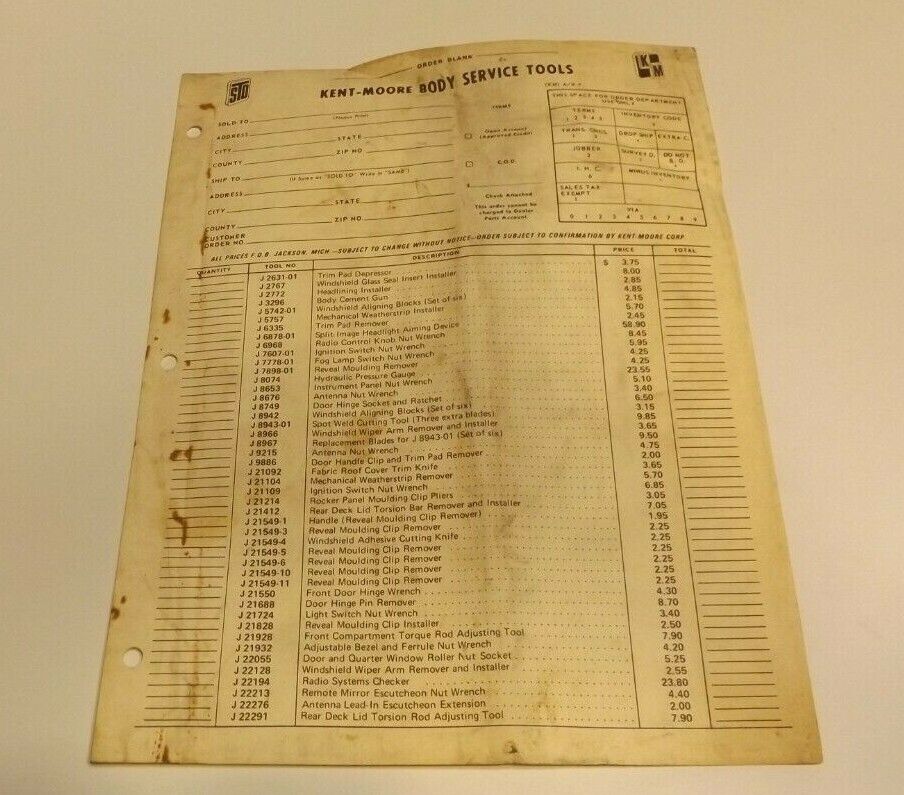 ORDER BLANK
KENT-MOORE BODY SERVICE TOOLS
STO
KM
SOLD TO
(Please Print)
ADDRESS
CITY STATE
COUNTY ZIP NO.
SHIP TO (If Same as "SOLD TO" Write in "SAME")
ADDRESS
CITY STATE
COUNTY ZIP NO.
CUSTOMER
ORDER NO.
TERMS
Open Account
(Approved Credit)
C.O.D.
Check Attached
This order cannot be
charged to Dealer
Parts Account.
THIS SPACE FOR ORDER DEPARTMENT
USE ONLY
TERMS
1 2 3 4 5
INVENTORY CODE
DROP SHIP
EXTRA C.
JOBBER
SURVEY D.
DO NOT
B.O.
I. H. C.
6
MINUS INVENTORY
SALES TAX
EXEMPT
VIA
0 1 2 3 4 5 6 7 8 9
ALL PRICES F.O.B. JACKSON, MICH.—SUBJECT TO CHANGE WITHOUT NOTICE—ORDER SUBJECT TO CONFIRMATION BY KENT-MOORE CORP
QUANTITY TOOL NO. DESCRIPTION PRICE TOTAL
J 2631-01 Trim Pad Depressor $ 3.75
J 2767 Windshield Glass Seal Insert Installer 8.00
J 2772 Headlining Installer 2.85
J 3296 Body Cement Gun 4.85
J 5742-01 Windshield Aligning Blocks (Set of six) 2.15
J 5757 Mechanical Weatherstrip Installer 5.70
J 6335 Trim Pad Remover 2.45
J 6878-01 Split Image Headlight Aiming Device 58.90
J 6968 Radio Control Knob Nut Wrench 8.45
J 7607-01 Ignition Switch Nut Wrench 5.95
J 7778-01 Fog Lamp Switch Nut Wrench 4.25
J 7898-01 Reveal Moulding Remover 4.25
J 8074 Hydraulic Pressure Gauge 23.55
J 8653 Instrument Panel Nut Wrench 5.10
J 8676 Antenna Nut Wrench 3.40
J 8749 Door Hinge Sockets and Ratchet 6.50
J 8942 Windshield Aligning Blocks (Set of six) 3.15
J 8943-01 Spot Weld Cutting Tool (Three extra blades) 9.85
J 8966 Windshield Wiper Arm Remover and Installer 3.65
J 8967 Replacement Blades for J 8943-01 (Set of six) 9.50
J 9215 Antenna Nut Wrench 4.75
J 9886 Door Handle Clip and Trim Pad Remover 2.00
J 21092 Fabric Roof Cover Trim Knife 3.65
J 21104 Mechanical Weatherstrip Remover 5.70
J 21109 Ignition Switch Nut Wrench 6.85
J 21214 Rocker Panel Moulding Clip Pliers 3.05
J 21412 Rear Deck Lid Torsion Bar Remover and Installer 7.05
J 21549-1 Handle (Reveal Moulding Clip Remover) 1.95
J 21549-3 Reveal Moulding Clip Remover 2.25
J 21549-4 Windshield Adhesive Cutting Knife 2.25
J 21549-5 Reveal Moulding Clip Remover 2.25
J 21549-6 Reveal Moulding Clip Remover 2.25
J 21549-10 Reveal Moulding Clip Remover 2.25
J 21549-11 Reveal Moulding Clip Remover 2.25
J 21550 Front Door Hinge Wrench 4.30
J 21688 Door Hinge Pin Remover 8.70
J 21724 Light Switch Nut Wrench 3.40
J 21828 Reveal Moulding Clip Installer 2.50
J 21928 Front Compartment Torque Rod Adjusting Tool 7.90
J 21932 Adjustable Bezel and Ferrule Nut Wrench 4.20
J 22055 Door and Quarter Window Roller Nut Socket 5.25
J 22128 Windshield Wiper Arm Remover and Installer 2.55
J 22194 Radio Systems Checker 23.80
J 22213 Remote Mirror Escutcheon Nut Wrench 4.40
J 22276 Antenna Lead-In Escutcheon Extension 2.00
J 22291 Rear Deck Lid Torsion Rod Adjusting Tool 7.90